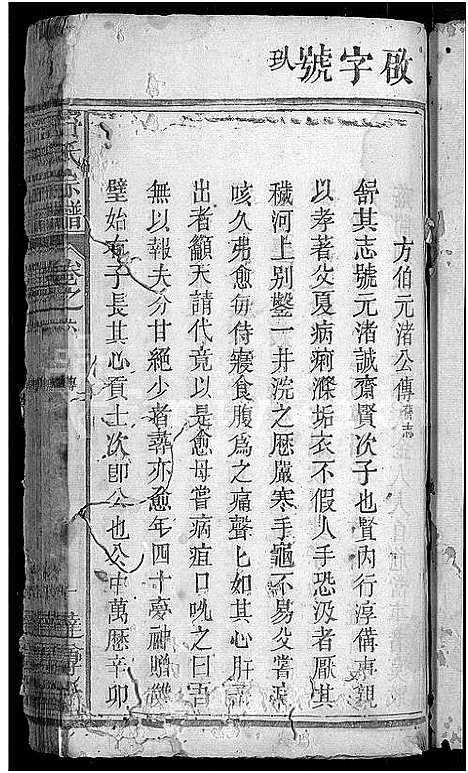 啟字號玖
方伯元渚公傳 舊志
舒其志號元渚誠齋賢次子也賢内行淳備事親
以孝著父夏病痢滌垢衣不假人手恐汲者厭其
穢河上别鑿一井浣之厯嚴寒手龜不易父嘗病
咳久弗愈毎侍寢食腹爲之痛聲匕如其心肝
出者籲天請代竟以是愈母嘗病疽口吮之曰吾
無以報夫分甘絕少者尋亦愈年四十夢神贈雙
璧始有子長其心貢士次卽公也公中萬厯辛卯
舒氏宗譜
卷之六
傳